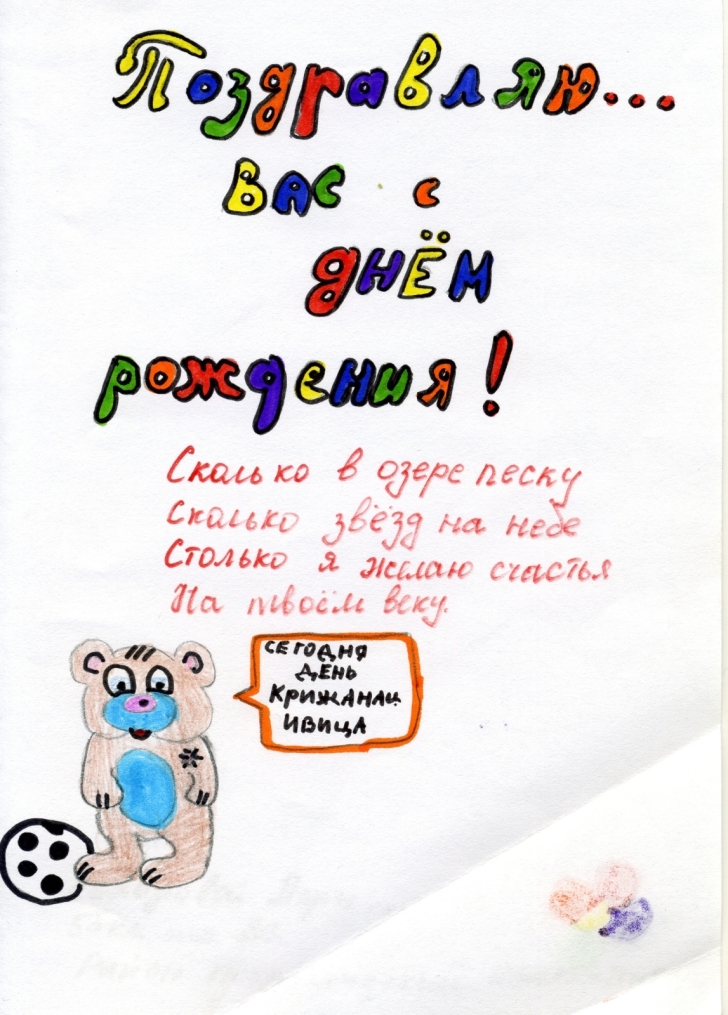 Поздравляю...
вас с
днём
рождения!
Сколько в озере песку
Сколько звёзд на небе
Столько я желаю счастья
На твоём веку.
СЕГОДНЯ
ДЕНЬ
КРИЖАНАЦ
ИВИЦА